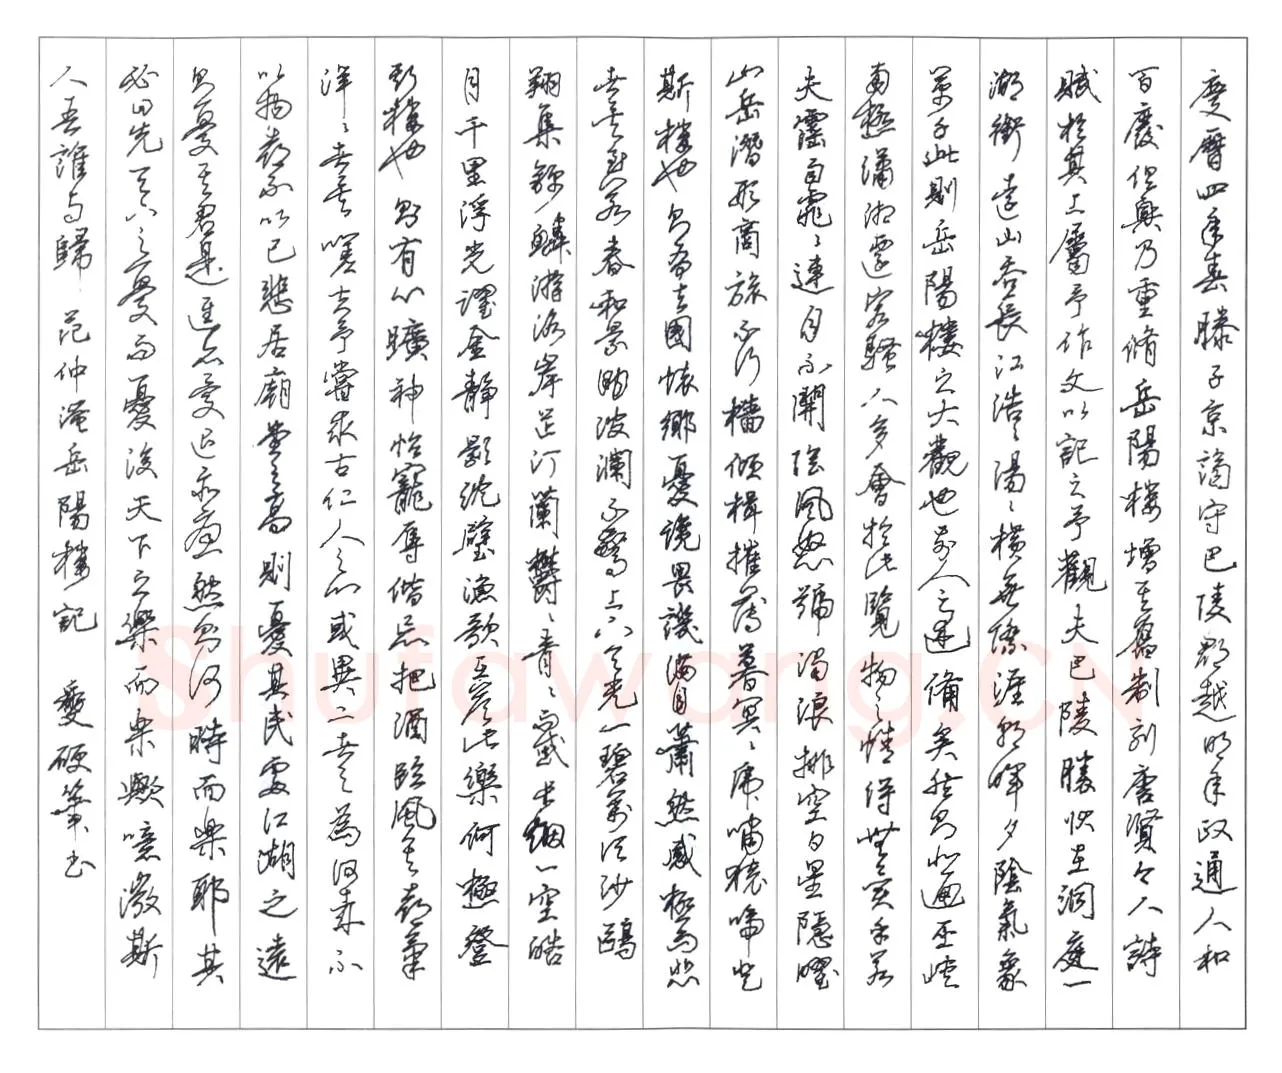 慶曆四年春滕子京謫守巴陵郡越明年政通人和
百廢俱興乃重脩岳陽樓增其舊制刻唐賢今人詩
賦於其上屬予作文以記之予觀夫巴陵勝狀在洞庭一
湖銜遠山吞長江浩浩湯湯橫無際涯朝暉夕陰氣象
萬千此則岳陽樓之大觀也前人之述備矣然則北通巫峽
南極瀟湘遷客騷人多會於此覽物之情得無異乎若
夫霪雨霏霏連月不開陰風怒號濁浪排空日星隱曜
山岳潛形商旅不行檣傾楫摧薄暮冥冥虎嘯猿啼登
斯樓也則有去國懷鄉憂讒畏譏滿目蕭然感極而悲
者矣至若春和景明波瀾不驚上下天光一碧萬頃沙鷗
翔集錦鱗游泳岸芷汀蘭鬱鬱青青而或長烟一空皓
月千里浮光躍金靜影沉璧漁歌互答此樂何極登
斯樓也則有心曠神怡寵辱偕忘把酒臨風其喜氣
洋洋者矣嗟夫予嘗求古仁人之心或異二者之為何哉不
以物喜不以己悲居廟堂之高則憂其民處江湖之遠
則憂其君是進亦憂退亦憂然則何時而樂耶其
必曰先天下之憂而憂後天下之樂而樂歟噫微斯
人吾誰與歸 范仲淹岳陽樓記 硬筆書
Shufawang.CN